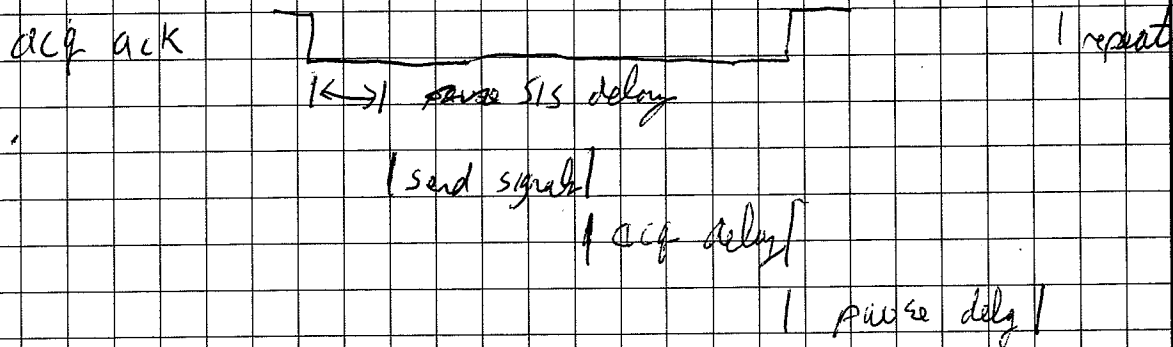 acq ack repeat
SIS delay
send signals
acq delay
pause delay